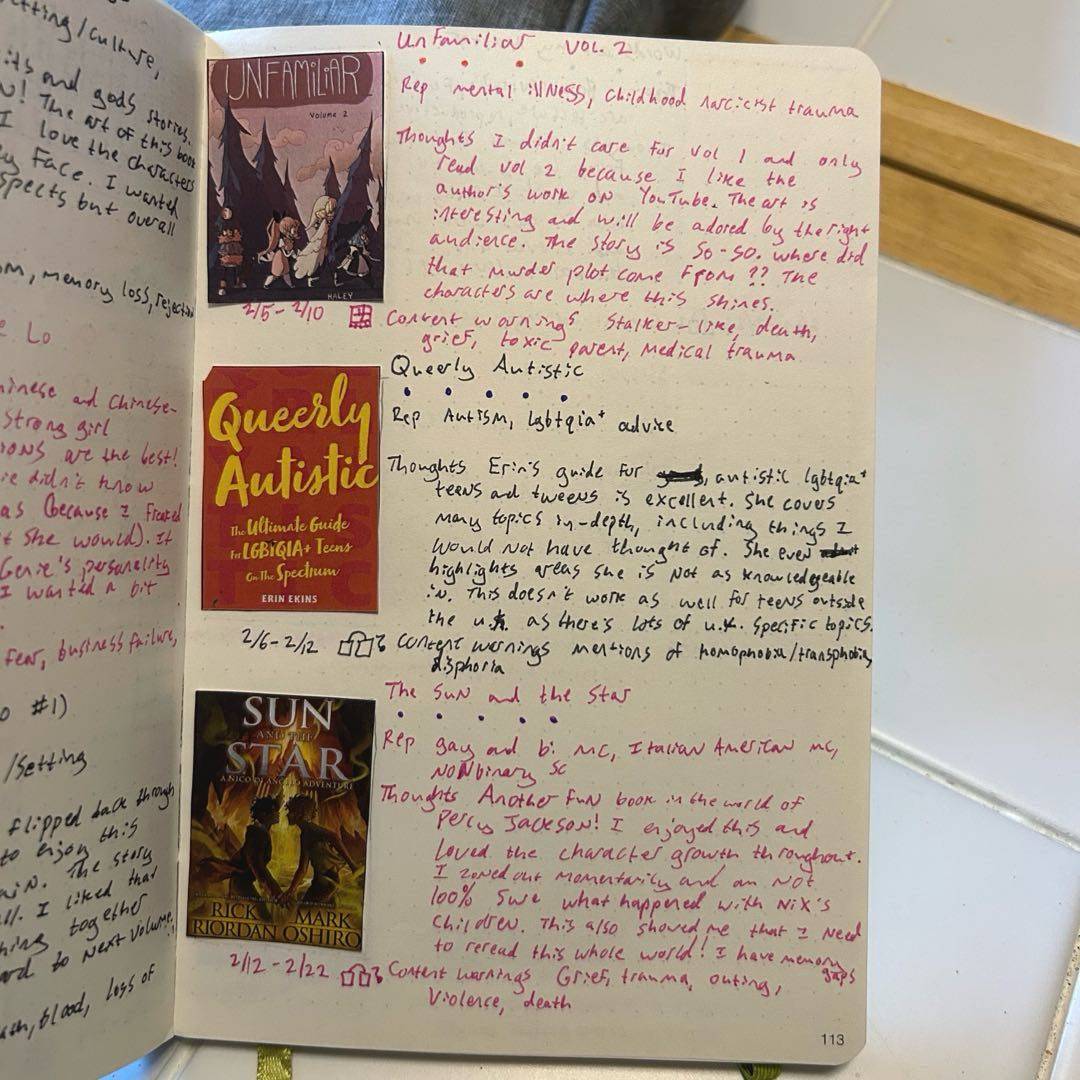 Setting/culture,
its and gods stories.
N! The art of this book
I love the characters
Face. I wanted
spects but overall
memory loss, rejection
Lo
and Chinese-
strong girl
IONS are the best!
ie didn't know
as (because I
t she would). It
Genie's personality
I wanted a bit
fear, business failure,
o #1)
/Setting
flipped back through
to enjoy this
ain. The story
ll. I liked that
hing together
ard to next volume!
ath, blood, loss of
UNFAMILIAR
Volume 2
HALEY
2/5-2/10
UnFamiliar VOL. 2
Rep mental illness, childhood narcicist trauma
Thoughts I didn't care for vol 1 and only
read vol 2 because I like the
author's work on YouTube. The art is
interesting and will be adored by the right
audience. The story is so-so. where did
that murder plot come from?? The
characters are where this shines.
Content warnings Stalker-like, death,
grief, toxic parent, medical trauma
Queerly
Autistic
The Ultimate Guide
For LGBTQIA+ Teens
On The Spectrum
ERIN EKINS
2/6-2/12
Queerly Autistic
Rep Autism, lgbtqia+ advice
Thoughts Erin's guide for autistic lgbtqia+
teens and tweens is excellent. She covers
many topics in-depth, including things I
would not have thought of. She even
highlights areas she is not as knowledgeable
in. This doesn't work as well for teens outside
the u.k. as there's lots of u.k. specific topics.
Content warnings mentions of homophobia/transphobia,
disphoria
SUN
AND THE
STAR
A NICO DI ANGELO ADVENTURE
RICK
RIORDAN
MARK
OSHIRO
2/12-2/22
The Sun and the Star
Rep gay and bi MC, Italian American mc,
Nonbinary SC
Thoughts Another fun book in the world of
Percy Jackson! I enjoyed this and
loved the character growth throughout.
I zoned out momentarily and am not
100% sure what happened with Nix's
children. This also showed me that I need
to reread this whole world! I have memory gaps
Content warnings Grief, trauma, outing,
Violence, death
113